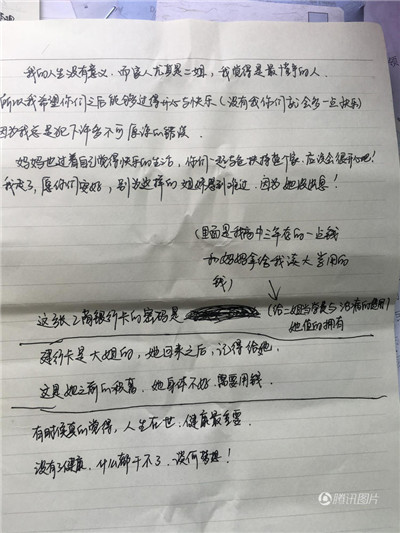 我的人生没有意义.而家人尤其是二姐,我觉得是最懂事的人.
所以我希望你们之后能够过得开心与快乐(没有我你们就会多一点快乐)
因为我总是犯下许多不可原谅的错误.
妈妈也过着自己觉得快乐的生活,你们一起
我走了,愿你们安好,别为这样的姐妹感到难过.因为她没出息!
(里面是我高中三年存的一点钱
和妈妈拿给我读大学用的
钱)
这张工商银行卡的密码是
(给二姐当学费与治病的费用)
她值得拥有
建行卡是大姐的,她回来之后,记得给她.
这是她之前的积蓄.她身体不好.需要用钱.
有时候真的觉得,人生在世.健康最重要.
没有了健康.什么都干不了.谈何梦想!
腾讯图片